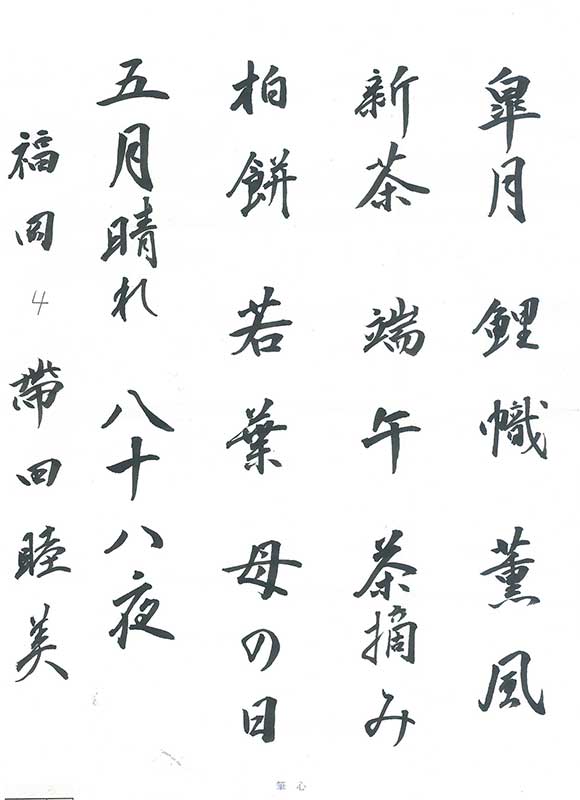 皐月 鯉幟 薫風
新茶 端午 茶摘み
柏餅 若葉 母の日
五月晴れ 八十八夜
福岡 4 帯田睦美
心筆